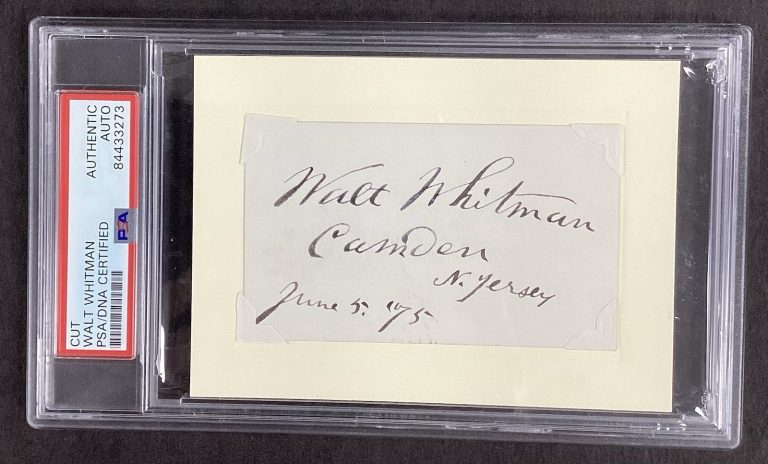 CUT
WALT WHITMAN
PSA/DNA CERTIFIED
AUTHENTIC
AUTO
84433273
PSA
Walt Whitman
Camden
N. Jersey
June 5. '75